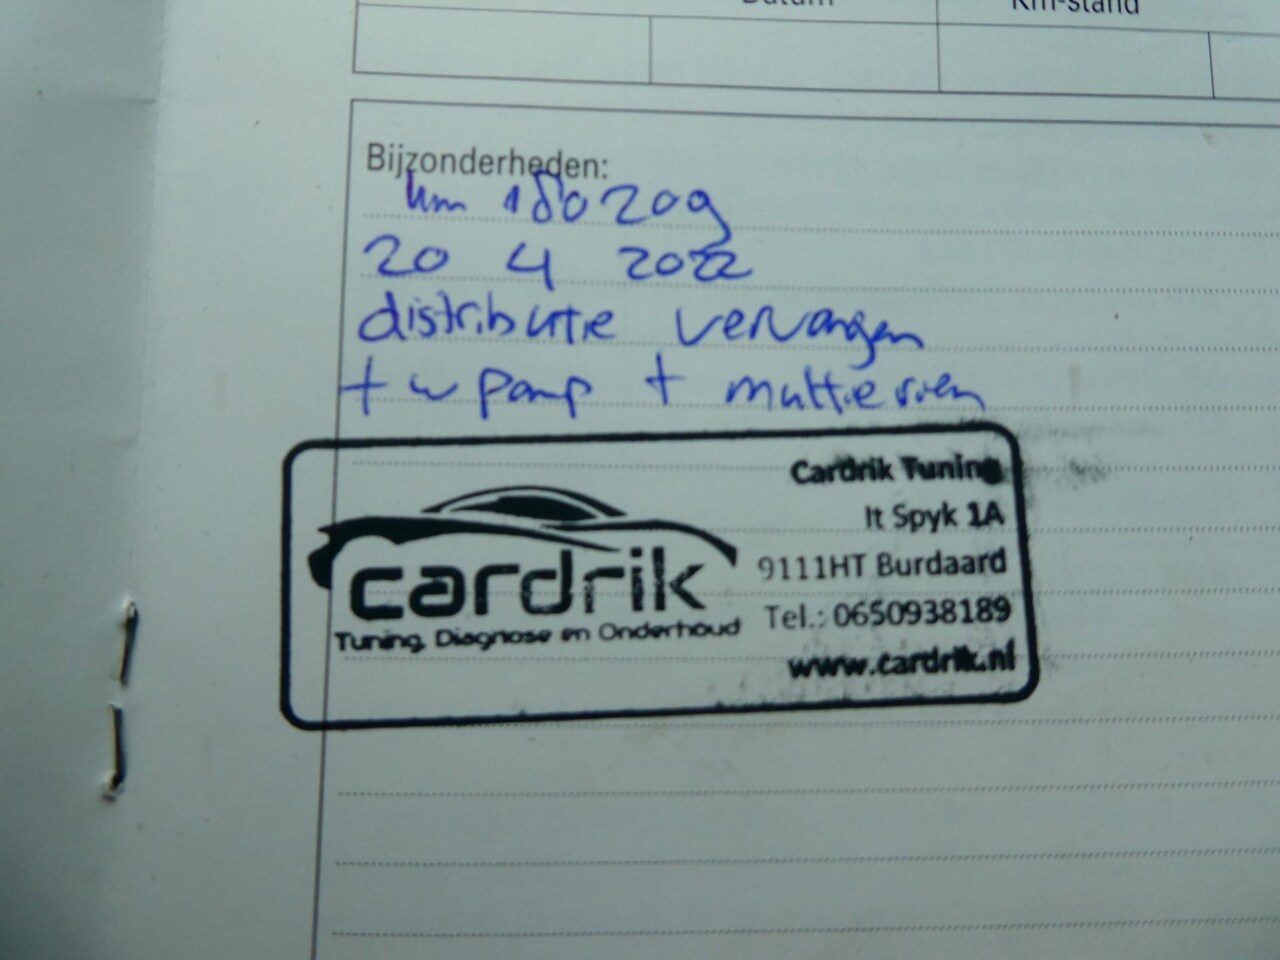 Datum Km-stand
Bijzonderheden:
km 180209
20 4 2022
distributie vervangen
+ w pomp + multieriem
Cardrik Tuning
It Spyk 1A
9111HT Burdaard
Tel.: 0650938189
www.cardrik.nl
cardrik
Tuning, Diagnose en Onderhoud